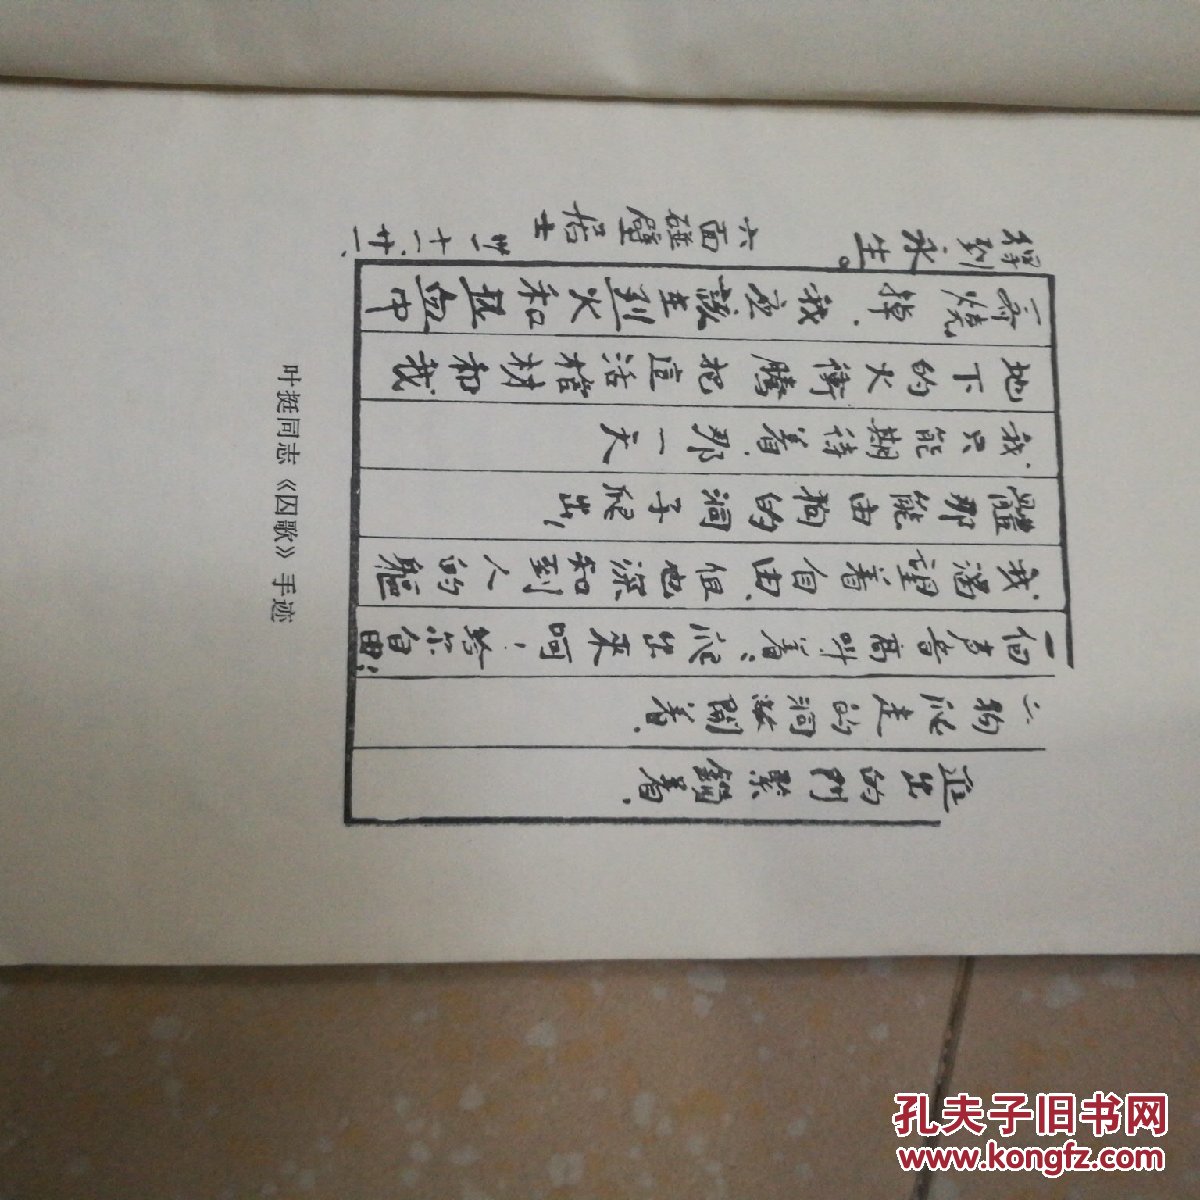 進出的門緊鎖着.
〻狗爬走的洞敞開着.
一個声音高叫着:爬出來呵,給尔自由;
我渴望着自由,但也深知到人的軀
體那能由狗的洞子爬出!
我只能期待着,那一天
地下的火衝騰把這活棺材和我
一齊燒掉.我應該在烈火和热血中
得到永生。
六面碰壁居士
卅一.十一.廿一.
叶挺同志《囚歌》手迹
孔夫子旧书网
www.kongfz.com